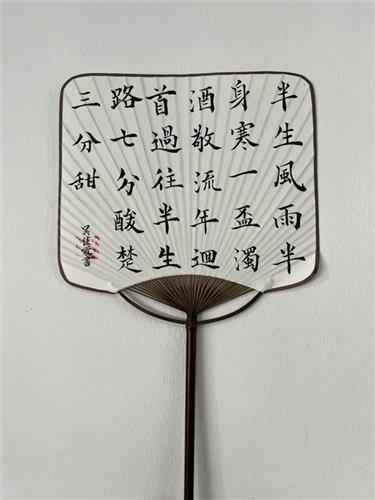 半生風雨半
身寒一盃濁
酒敬流年迴
首過往半生
路七分酸楚
三分甜